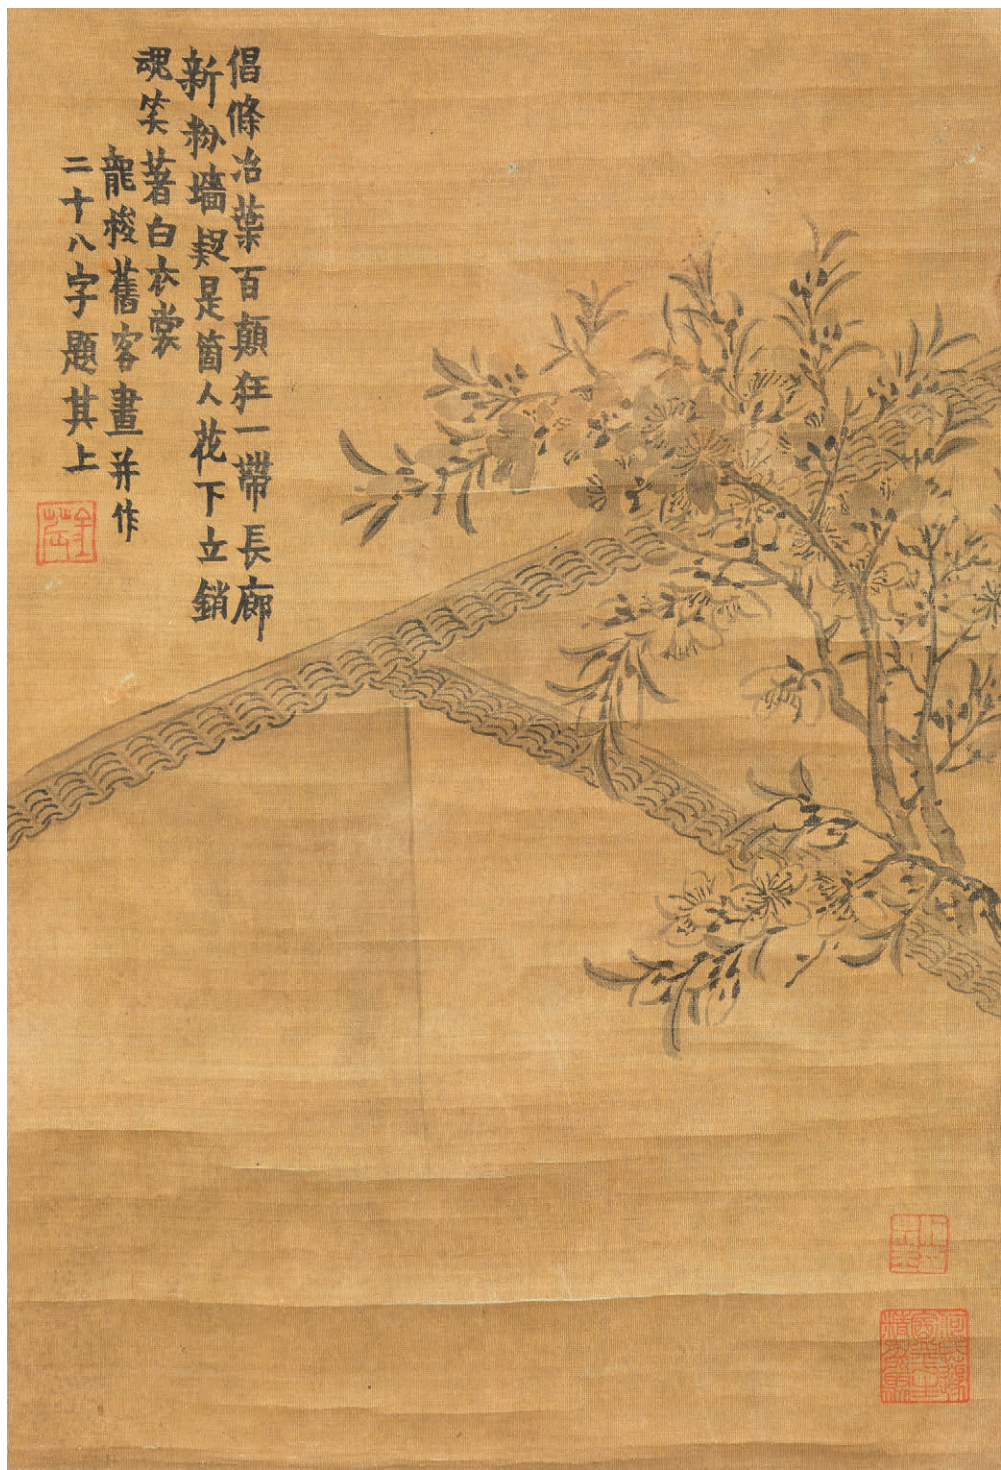 倡條冶葉百顛狂一帶長廊
新粉墻疑是箇人花下立銷
魂笑著白衣裳
龍梭舊客畫并作
二十八字題其上